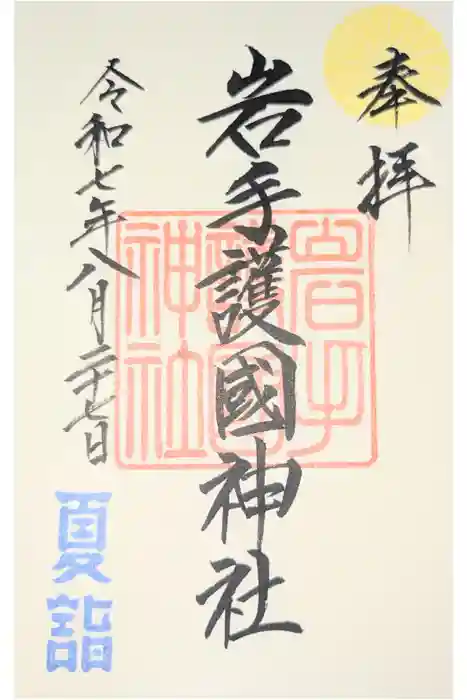 奉拝
岩手護國神社
岩手
護國
神社
令和七年八月二十七日
夏詣